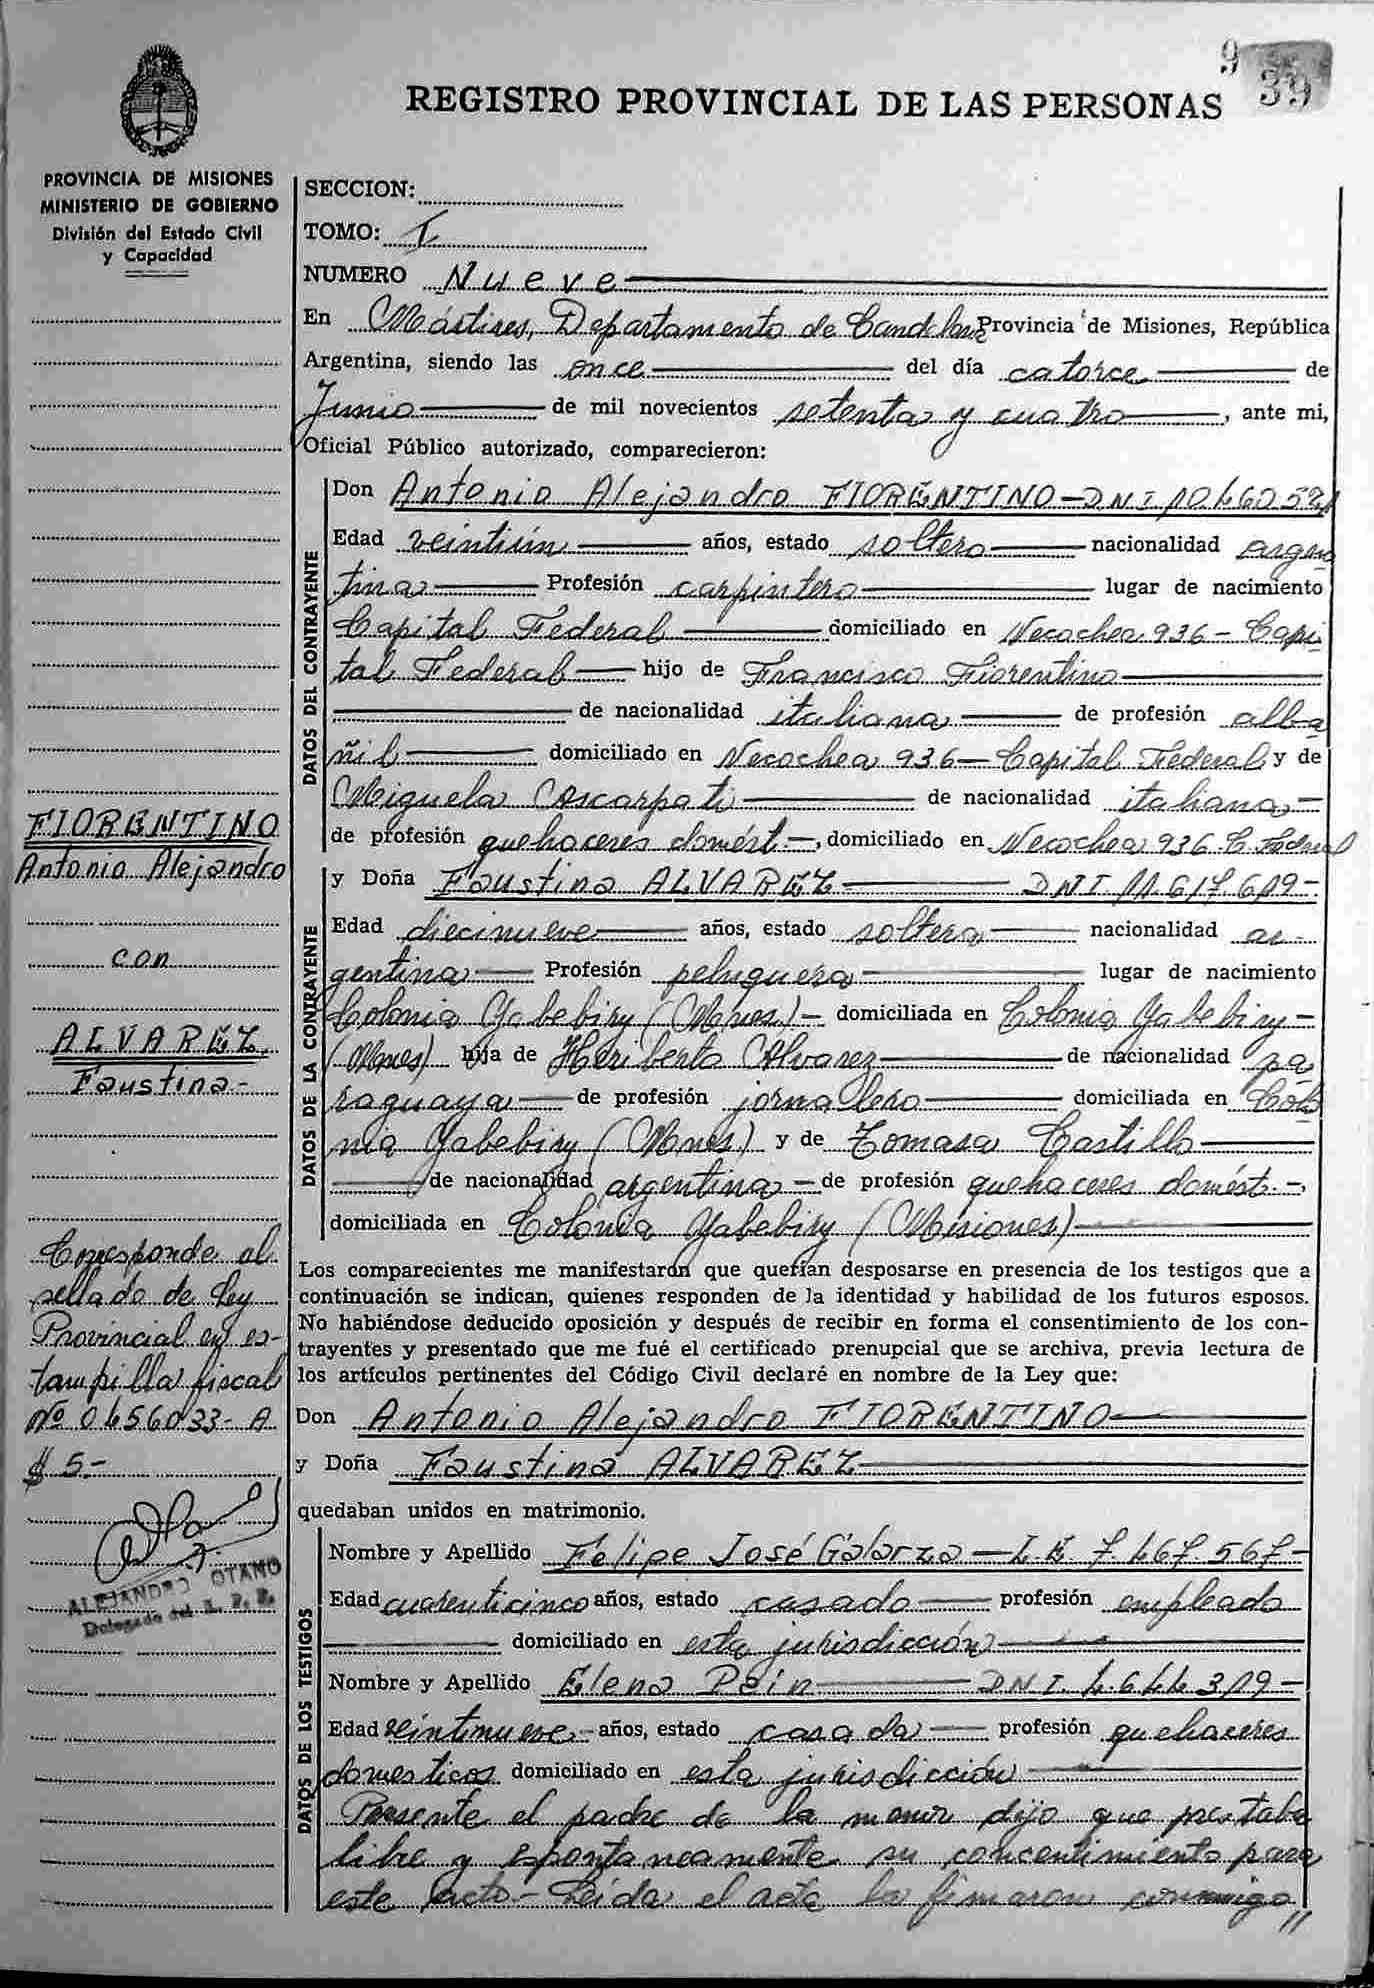 9
39
REGISTRO PROVINCIAL DE LAS PERSONAS
PROVINCIA DE MISIONES
MINISTERIO DE GOBIERNO
División del Estado Civil
y Capacidad
FIORENTINO
Antonio Alejandro
con
ALVAREZ
Faustina.-
Corresponde al
sellado de Ley
Provincial en es-
tampilla fiscal
Nº 0456033-A
$ 5.-
ALEJANDRO OTAÑO
Delegado del R. P. P.
SECCION:
TOMO: I
NUMERO Nueve
En Mártires, Departamento de Candelaria Provincia de Misiones, República
Argentina, siendo las once del día catorce de
Junio de mil novecientos setenta y cuatro, ante mi,
Oficial Público autorizado, comparecieron:
DATOS DEL CONTRAYENTE
Don Antonio Alejandro FIORENTINO-DNI
Edad veintiún años, estado soltero nacionalidad argen
tina Profesión carpintero lugar de nacimiento
Capital Federal domiciliado en Necochea 936- Capi
tal Federal hijo de Francisco Fiorentino
de nacionalidad italiana de profesión alba
ñil domiciliado en Necochea 936- Capital Federal y de
Miguela Ascarpati de nacionalidad italiana-
de profesión quehaceres domést.-, domiciliado en Necochea 936 C. Federal
DATOS DE LA CONTRAYENTE
y Doña Faustina ALVAREZ DNI 11.617.619-
Edad diecinueve años, estado soltera nacionalidad ar-
gentina Profesión peluquera lugar de nacimiento
Colonia Yabebiry (Mnes.)- domiciliada en Colonia Yabebiry-
(Mnes) hija de Heriberto Alvarez de nacionalidad pa
raguaya de profesión jornalero domiciliada en Colo
nia Yabebiry (Mnes.) y de Tomasa Castillo
de nacionalidad argentina-de profesión quehaceres domést.-,
domiciliada en Colonia Yabebiry (Misiones)
Los comparecientes me manifestaron que querían desposarse en presencia de los testigos que a
continuación se indican, quienes responden de la identidad y habilidad de los futuros esposos.
No habiéndose deducido oposición y después de recibir en forma el consentimiento de los con-
trayentes y presentado que me fué el certificado prenupcial que se archiva, previa lectura de
los artículos pertinentes del Código Civil declaré en nombre de la Ley que:
Don Antonio Alejandro FIORENTINO
y Doña Faustina ALVAREZ
quedaban unidos en matrimonio.
DATOS DE LOS TESTIGOS
Nombre y Apellido Felipe José Galarza-L.E. 7.467.567-
Edad cuarenticinco años, estado casado profesión empleado
domiciliado en esta jurisdicción
Nombre y Apellido Elena Dein DNI 4.644.319-
Edad veintinueve-años, estado casada profesión quehaceres
domesticos domiciliado en esta jurisdicción
Presente el padre de la menor dijo que prestaba
libre y espontaneamente su concentimiento para
este acto.- Leida el acta la firmaron conmigo//